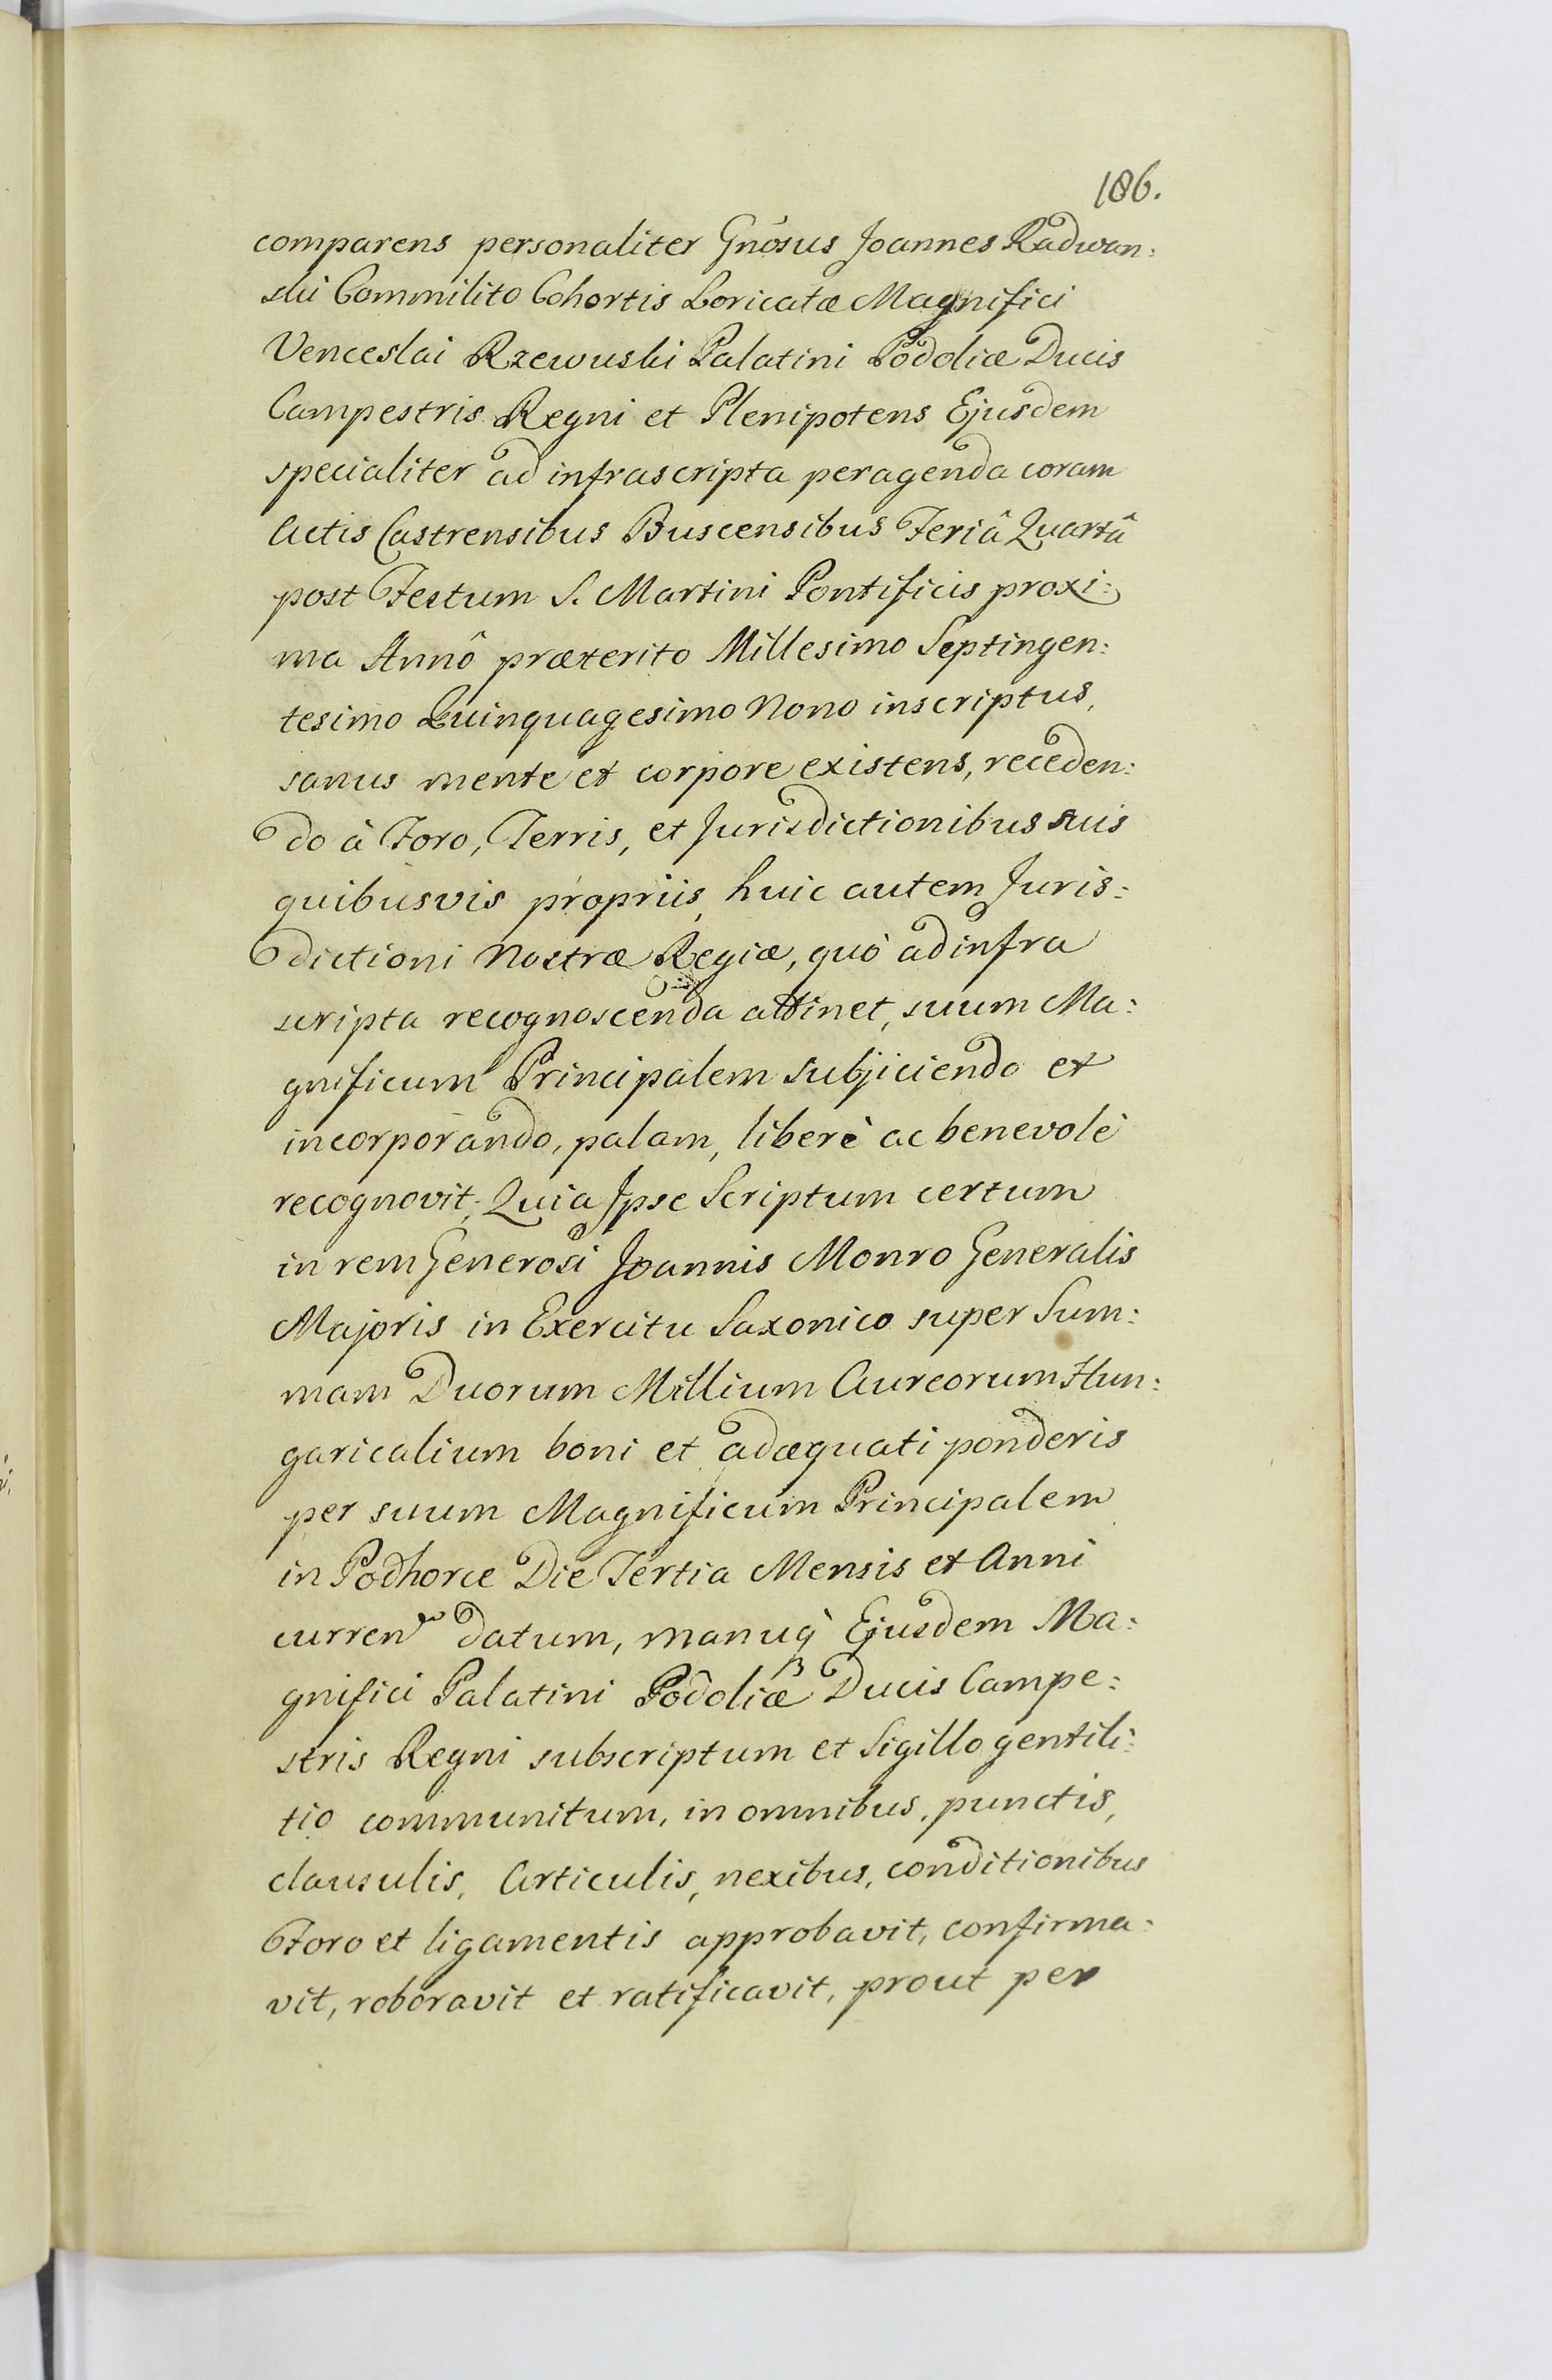 186.
comparens personaliter Gnosus Joannes Radwan:
ski Commilito Cohortis Loricatæ Magnifici
Venceslai Rzewuski Palatini Podoliæ Ducis
Campestris Regni et Plenipotens Ejusdem
specialiter ad infrascripta peragenda coram
Actis Castrensibus Buscensibus Feriâ Quartâ
post Festum S. Martini Pontificis proxi:
ma Annô præterito Millesimo Septingen:
tesimo Quinquagesimo Nono inscriptus,
sanus mente et corpore existens, receden:
do à Foro, Terris, et Jurisdictionibus suis
quibusvis propriis, huic autem Juris:
dictioni Nostræ Regiæ, quò ad infra
scripta recognoscenda attinet, suum Ma:
gnificum Principalem subjiciendo et
incorporando, palam, liberè ac benevolè
recognovit; Quia Ipse Scriptum certum
in rem Generosi Joannis Monro Generalis
Majoris in Exercitu Saxonico super Sum:
mam Duorum Millium Aureorum Hun:
garicalium boni et adæquati ponderis
per suum Magnificum Principalem
in Podhorce Die Tertia Mensis et Anni
curren datum, manuq Ejusdem Ma:
gnifici Palatini Podoliæ Ducis Campe:
stris Regni subscriptum et Sigillo gentili:
tio communitum, in omnibus, punctis,
clausulis, Articulis, nexibus, conditionibus
Foro et ligamentis approbavit, confirma:
vit, roboravit et ratificavit, prout per